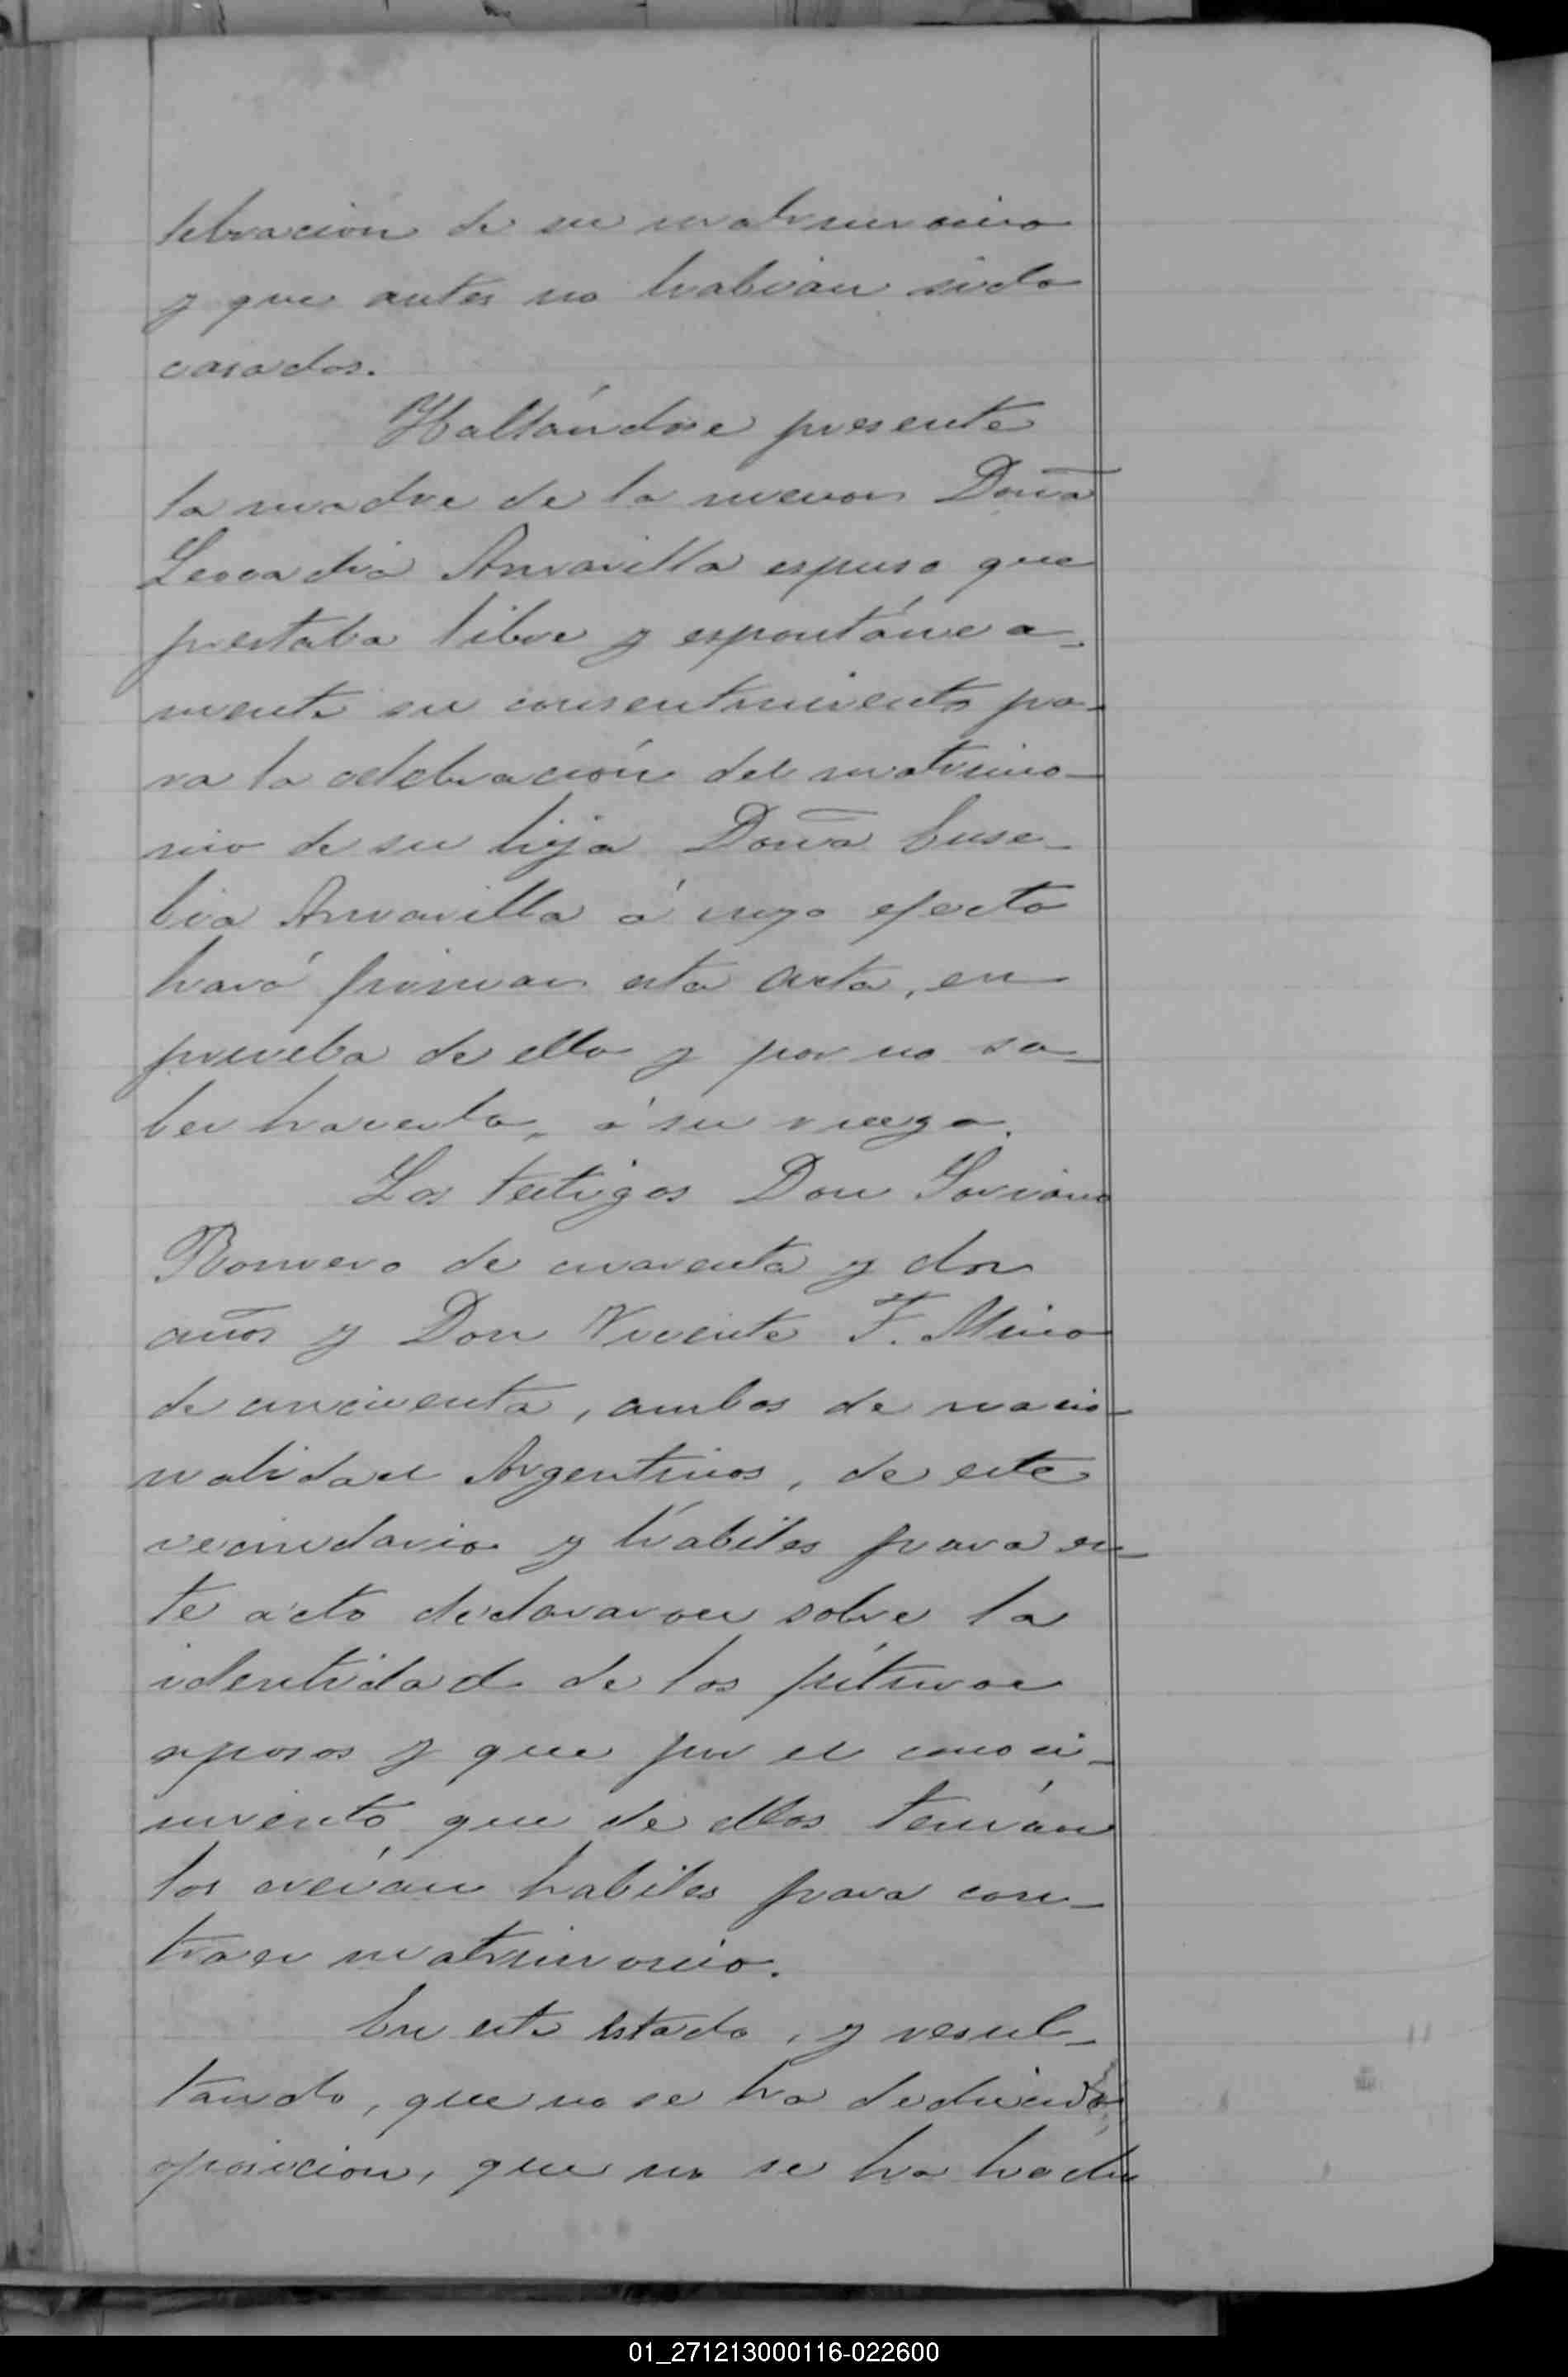 lebración de su matrimonio
y que antes no habian sido
casados.
Hallándose presente
la madre de la menor Doña
Leocadia Amarilla espuso que
prestaba libre y espontánea-
mente su consentimiento pa-
ra la celebración del matrimo-
nio de su hija Doña Euse-
bia Amarilla á cuyo efecto
hará firmar esta acta, en
prueba de ello y por no sa-
ber hacerlo, á su ruego.
Los testigos Don Soriano
Romero de cuarenta y dos
años y Don Vicente F. Mino
de cincuenta, ambos de nacio-
nalidad Argentinos, de este
vecindario y hábiles para es-
te acto declararon sobre la
identidad de los futuros
esposos y que por el conoci-
miento que de ellos tenían
los creían habiles para con-
traer matrimonio.
En este estado, y resul-
tando, que no se ha deducido
oposicion, que no se ha hecho
01_271213000116-022600